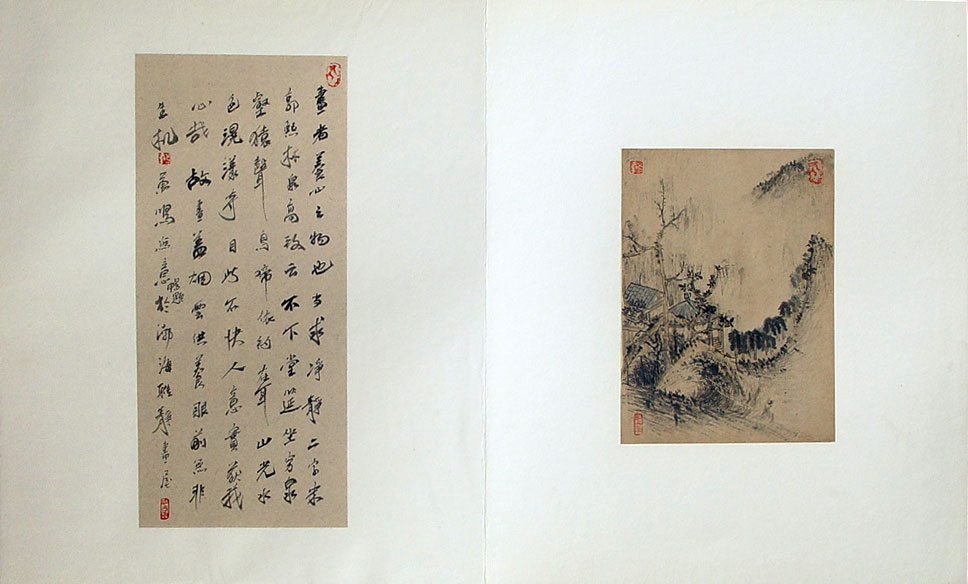 畫者養心之物也求淨靜二字宋
郭熙林泉高致云不下堂筵坐窮泉
壑猿聲鳥啼依約在耳山光水
色滉漾奪目此不快人意實獲我
心哉故畫蓋烟雲供養眼前無非
生机鳴於渤海靜書屋